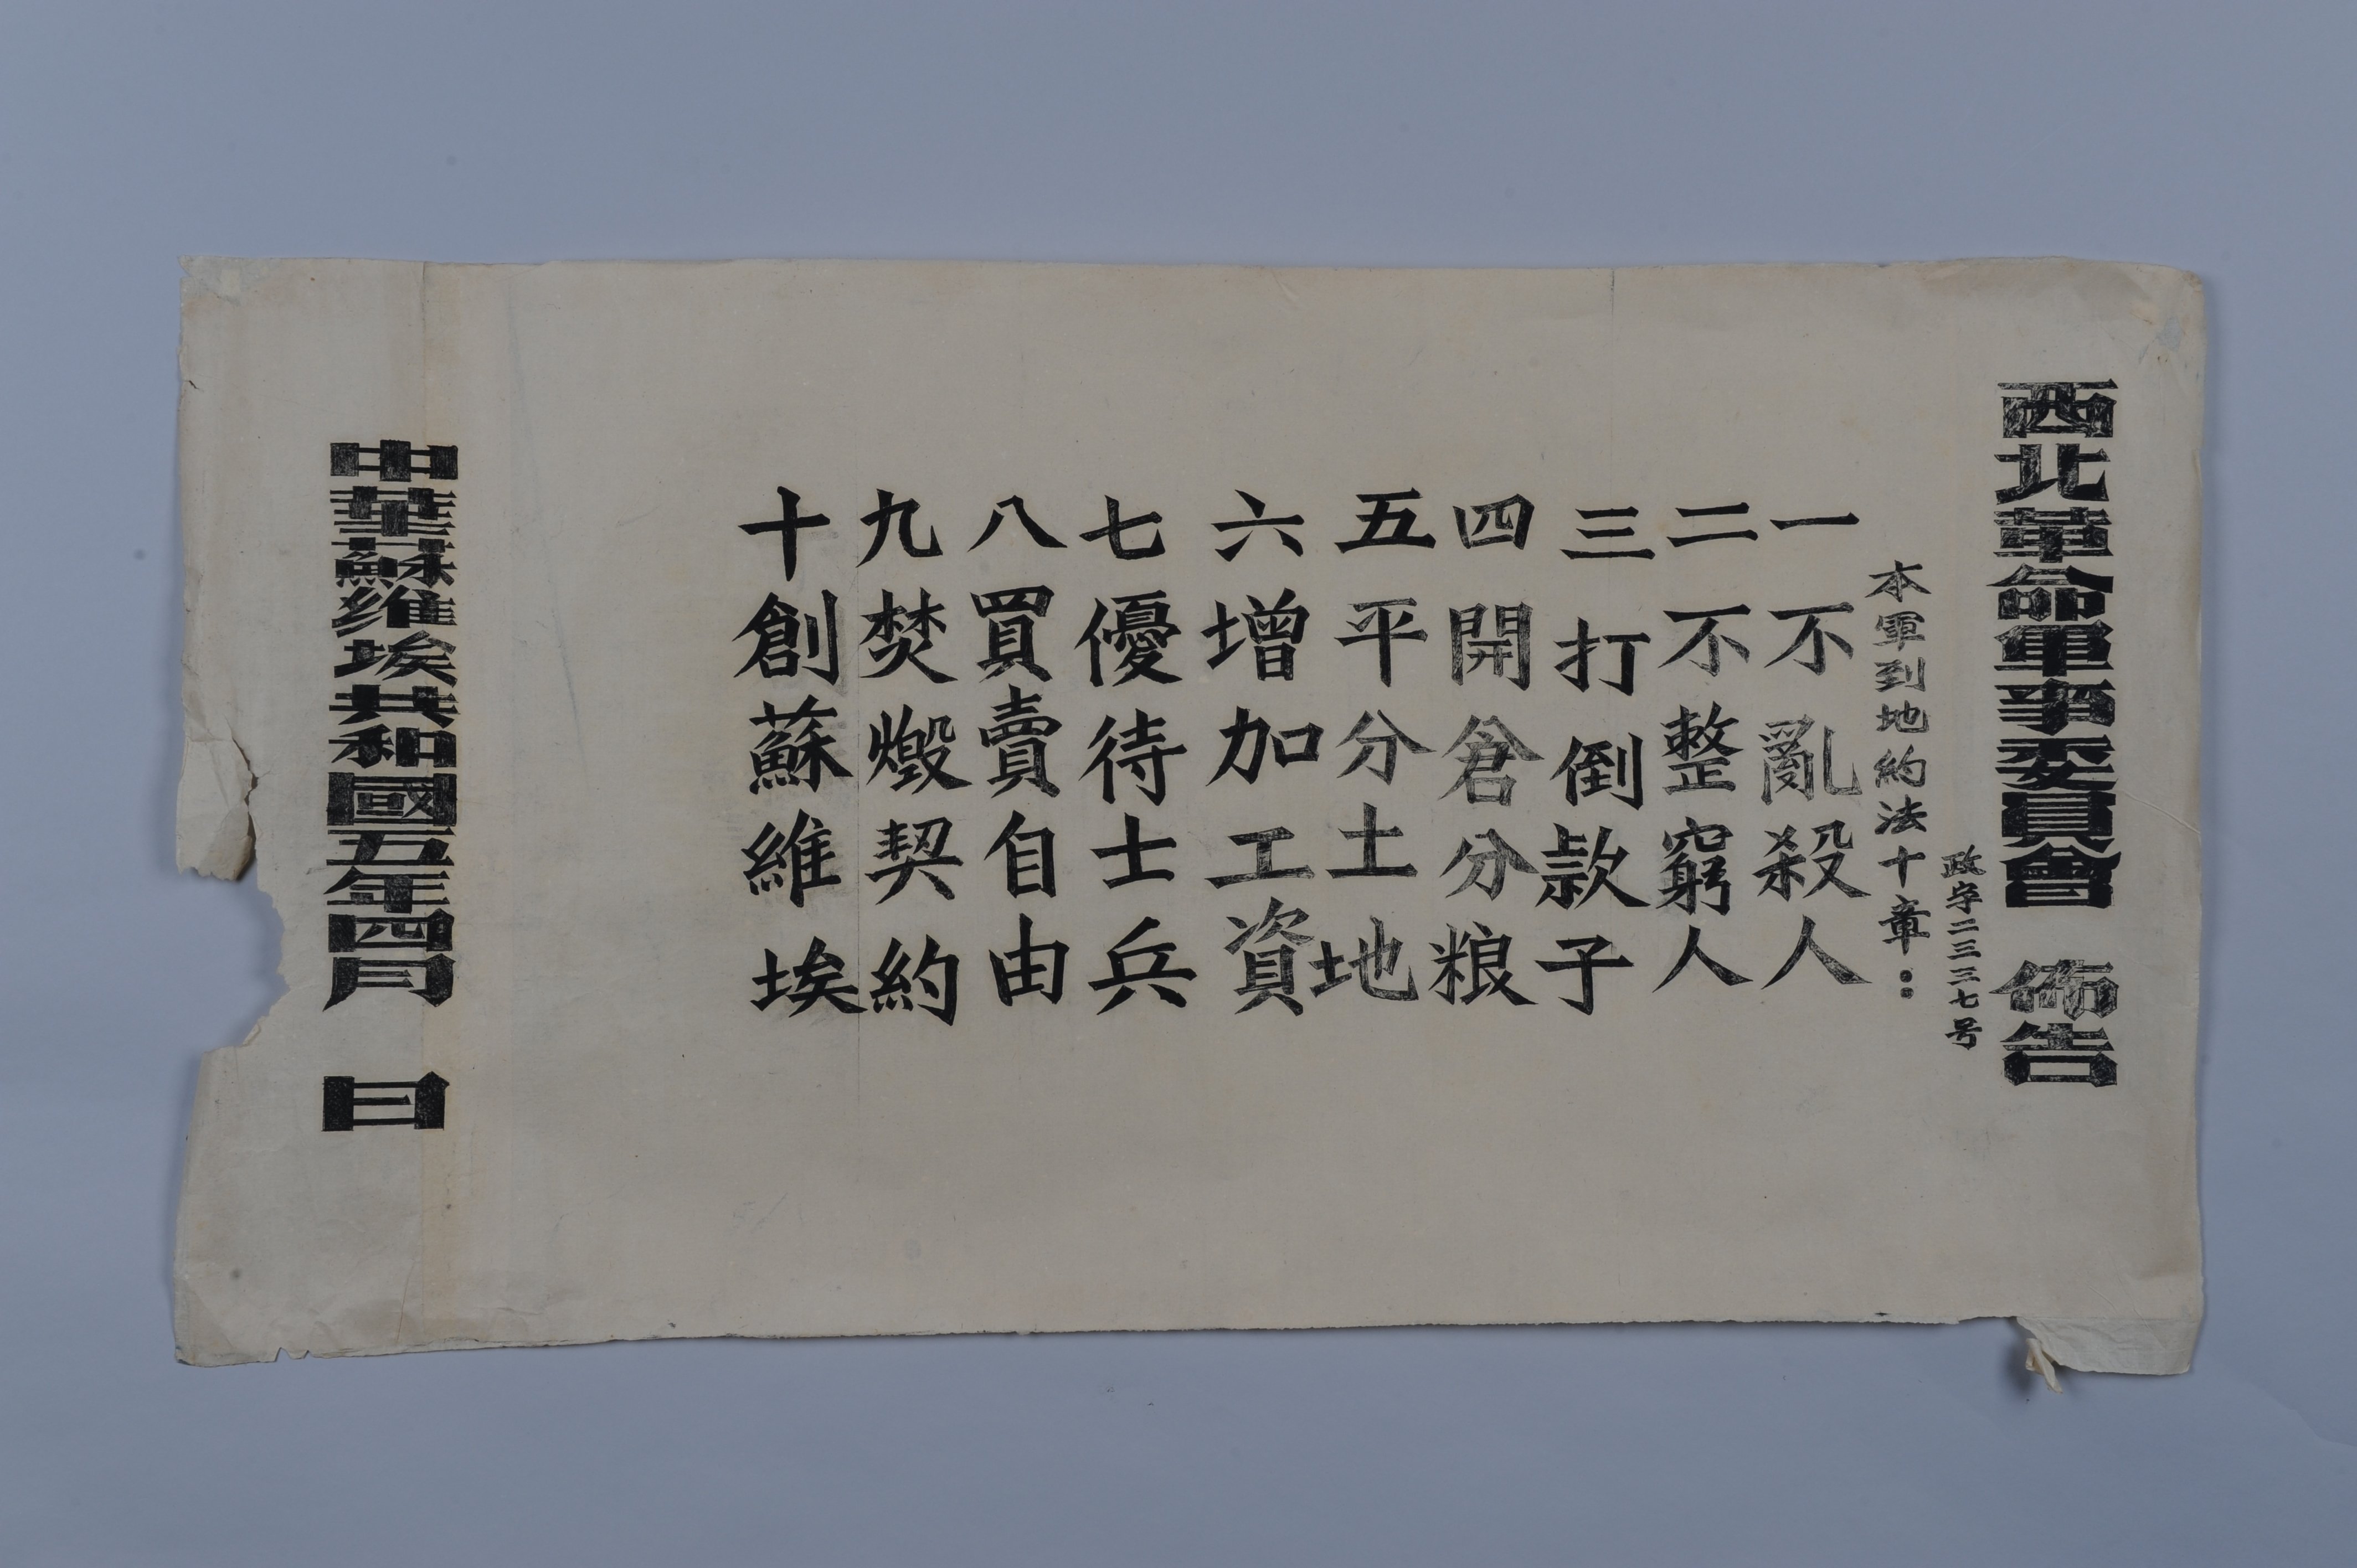 西北革命軍事委員會 佈告
政字二三三七号
本軍到地約法十章：
一 不亂殺人
二 不整窮人
三 打倒款子
四 開倉分粮
五 平分土地
六 增加工資
七 優待士兵
八 買賣自由
九 焚燬契約
十 創蘇維埃
中華蘇維埃共和國五年四月 日